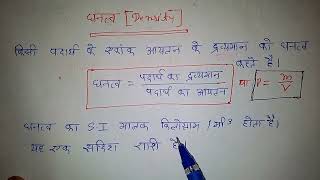 घनत्व [Density]
किसी पदार्थ के एकांक आयतन के द्रव्यमान को घनत्व कहते हैं।
घनत्व = पदार्थ का द्रव्यमान / पदार्थ का आयतन या ρ = m/V
घनत्व का S.I मात्रक किलोग्राम / मी³ होता है।
यह एक सदिश राशि है